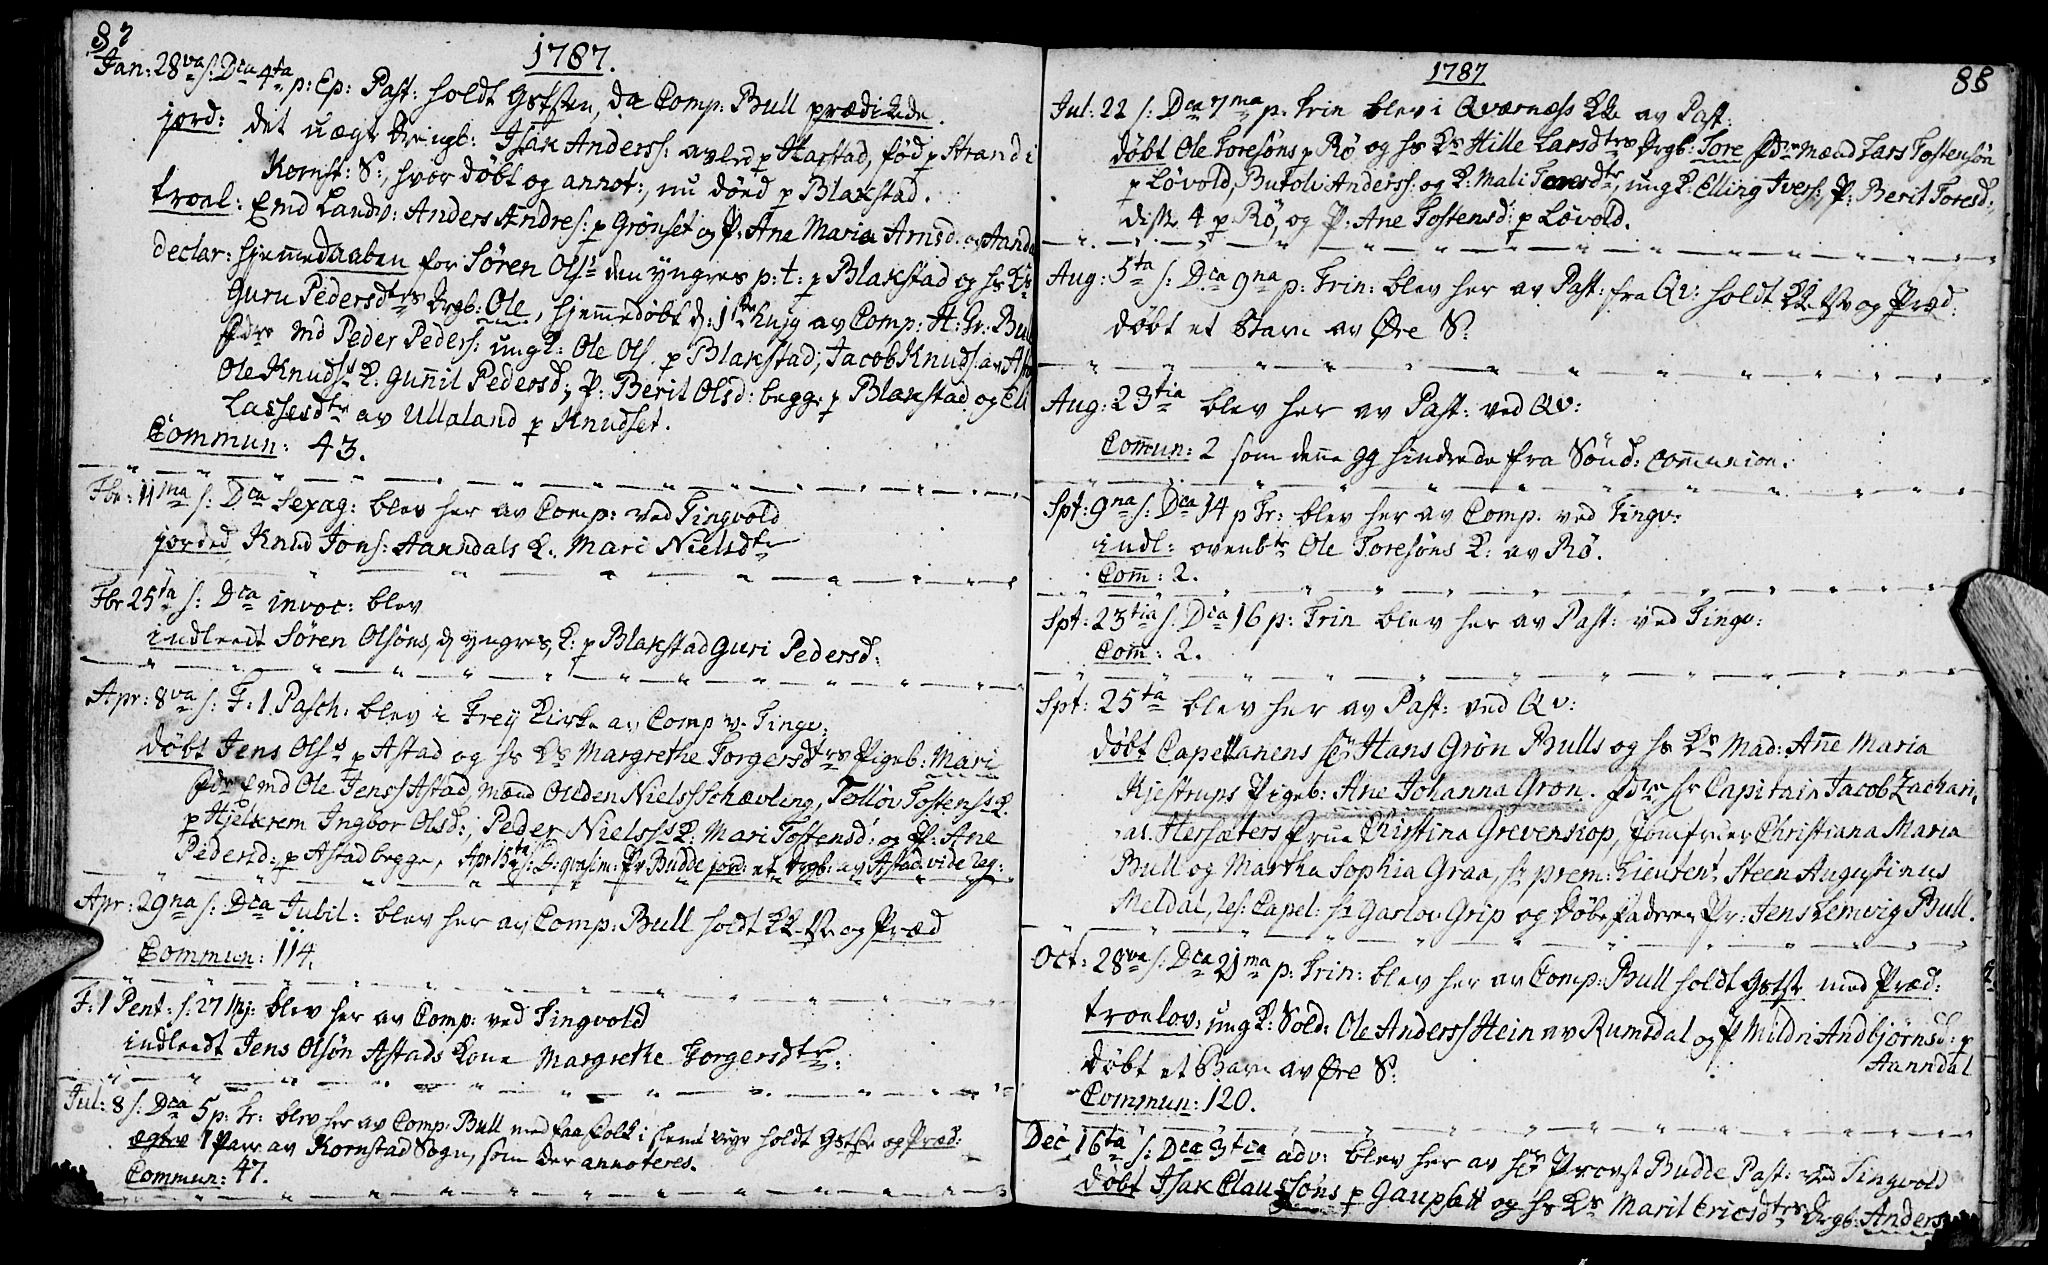 87
1787.
Jan: 28va s: Dca 4ta p: Ep: Past: holdt Gststen, da Comp: Bull prædikede.
jord: det uægt drengb: Isak Anderss: avled p Harstad, fød p Strand i
Kornst: S:, hvor døbt og annot:, nu dønd p Blakstad.
trool: Emd Landv: Anders Andres: p Grønset og P. Ane Maria Arnsd:
declar: hjemmedaaben for Søren Ols's den yngres p: t: p Blakstad og hs Ks
Guru Pedersdtrs drgb: Ole, hjemmedøbt d: 1 av Comp: H: Gr: Bull
Fdre Md Peder Peders: ungk: Ole Ols. p Blakstad; Jacob Knuds: av
Ole Knuds's K: Gunnil Pedersd:, P: Berit Olsd: begge p Blakstad og Eli
Lassesdtr av Ullaland p Knudset.
Commun: 43.
Fbr: 11ma s: Dca Sexag: blev her av Comp: ved Tingvold
jorded Knud Jons: Aanndals K. Mari Nielsdtr
Fbr 25ta s: Dca invoc: blev
indleedt Søren Olsøns, d yngres, K: p Blakstad Guri Pedersd:
Apr: 8va s: F: 1 Pasch: blev i Frey Kirke av Comp v. Tingv:
døbt Jens Ols's p Astad og hs Ks Margrethe Torgersdtrs Pigeb: Mari
Fdre Emd Ole Jenss Astad, Mænd Ouden Nielss Schævling, Tolløv Tostenss K:
p Hjelkrem Ingbor Olsd:, Peder Nielss's K: Mari Tostensd: og P: Ane
Pedersd: p Astad begge, Apr 15ta s: D: qvasim: Pr Budde jord: et drgb: av Astad vide
Apr: 29na s: Dca Jubil: blev her av Comp: Bull holdt KK Pr og Præd
Commun: 114.
F: 1 Pent: s: 27 Mj: blev her av Comp: ved Tingvold
indleedt Jens Olsøn Astads Kone Margrethe Torgersdtr:
Jul: 8 s: Dca 5 p: Tr: blev her av Comp: Bull med faa folk i slemt veyr holdt Gstste og Præd:
ægtev 1 Parr av Kornstad Sogn, som der annoteres.
Commun: 47.
1787
88
Jul: 22 s: Dca 7ma p: Trin blev i Qværness KK av Past:
døbt Ole Toresøns p Rø og hs Ks Hille Larsdtrs drgb: Tore Fdre Mænd Lars Tostensøn
p Løvold, Butolv Anderss: og K: Mali Toresdtr, ungk: Elling Ivers: P: Berit Toresd:,
diss 4 p Rø, og P: Ane Tostensd: p Løvold.
Aug: 5ta s: Dca 9na p: Trin: blev her av Past: fra Qv: holdt KK Pr og Præd:
døbt et Barn av Øre S:
Aug: 23tia blev her av Past: ved Qv:
Comun: 2 som denne gg hindrede fra Sønd: Communion.
Spt: 9na s: Dca 14 p Tr: blev her av Comp. ved Tingv:
indl: ovenbte Ole Toresøns K: av Rø.
Com: 2.
Spt: 23tia s: Dca 16 p: Trin blev her av Past: ved Tingv:
Com: 2.
Spt: 25ta blev her av Past: ved Qv:
døbt Capellanens Hr Hans Grøn Bulls og hs Ks Mad: Ane Maria
Kjestrups Pigeb: Ane Johanna Grøn. Fdre Hr Capitain Jacob Zachari-
as Hersæters Frue Christina Grevenkop, Jomfruer Christiana Maria
Bull og Martha Sophia Graa, Hr prem: Lieutent: Steen Augustinus
Meldal, res: Capel: Hr Garlov Grip og døbefaderen Pr: Jens Lemvig Bull.
Oct: 28va s: Dca 21ma p: Trin: blev her av Comp: Bull holdt Gstst med Præd:
troelov: ung K: Sold: Ole Anderss Hein av Rumsdal og P Mildri Andbjørnsd: p
Aanndal
døbt et Barn av Øre S:
Commun: 120.
Dec 16ta s: Dca 3tia adv: blev her av Hr Provst Budde Past: ved Tingvold
døbt Isak Claussøns p Gaupset og hs Ks Marit Ericsdtrs drgb: Anders